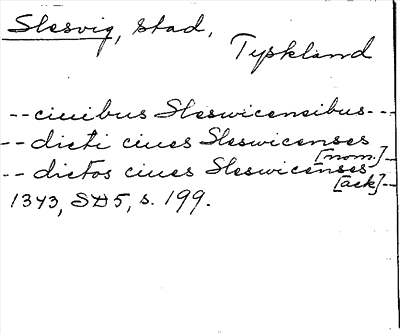 Slesvig, stad,
Tyskland
-- ciuibus Sleswicensibus --
-- dicti ciues Sleswicenses
[nom.] --
-- dictos ciues Sleswicenses
[ack] --
1343, SD5, s. 199.